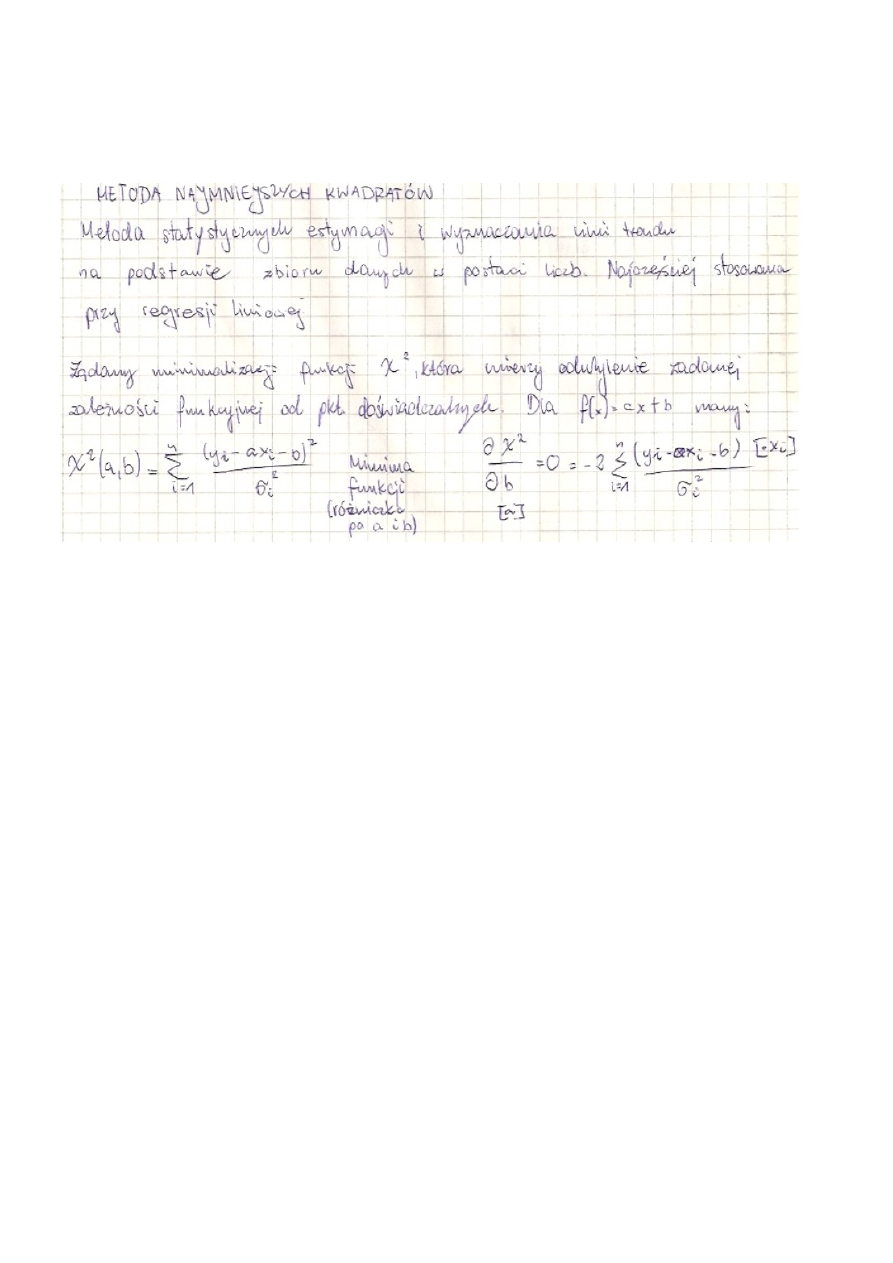 METODA NAJMNIEJSZYCH KWADRATÓW
Metoda statystycznych estymacji i wyznaczania linii trendu
na podstawie zbioru danych w postaci liczb. Najczęściej stosowana
przy regresji liniowej
Żądamy minimalizacji funkcji χ², która mierzy odchylenie zadanej
zależności funkcyjnej od pkt. doświadczalnych. Dla f(x) = ax + b mamy:
χ²(a,b) = Σ_{i=1}^{n} (yᵢ - axᵢ - b)² / σᵢ² Minima funkcji (różniczka po a i b) ∂χ² / ∂b [a] = 0 = -2 Σ_{i=1}^{n} (yᵢ - axᵢ - b) / σᵢ² [·xᵢ]